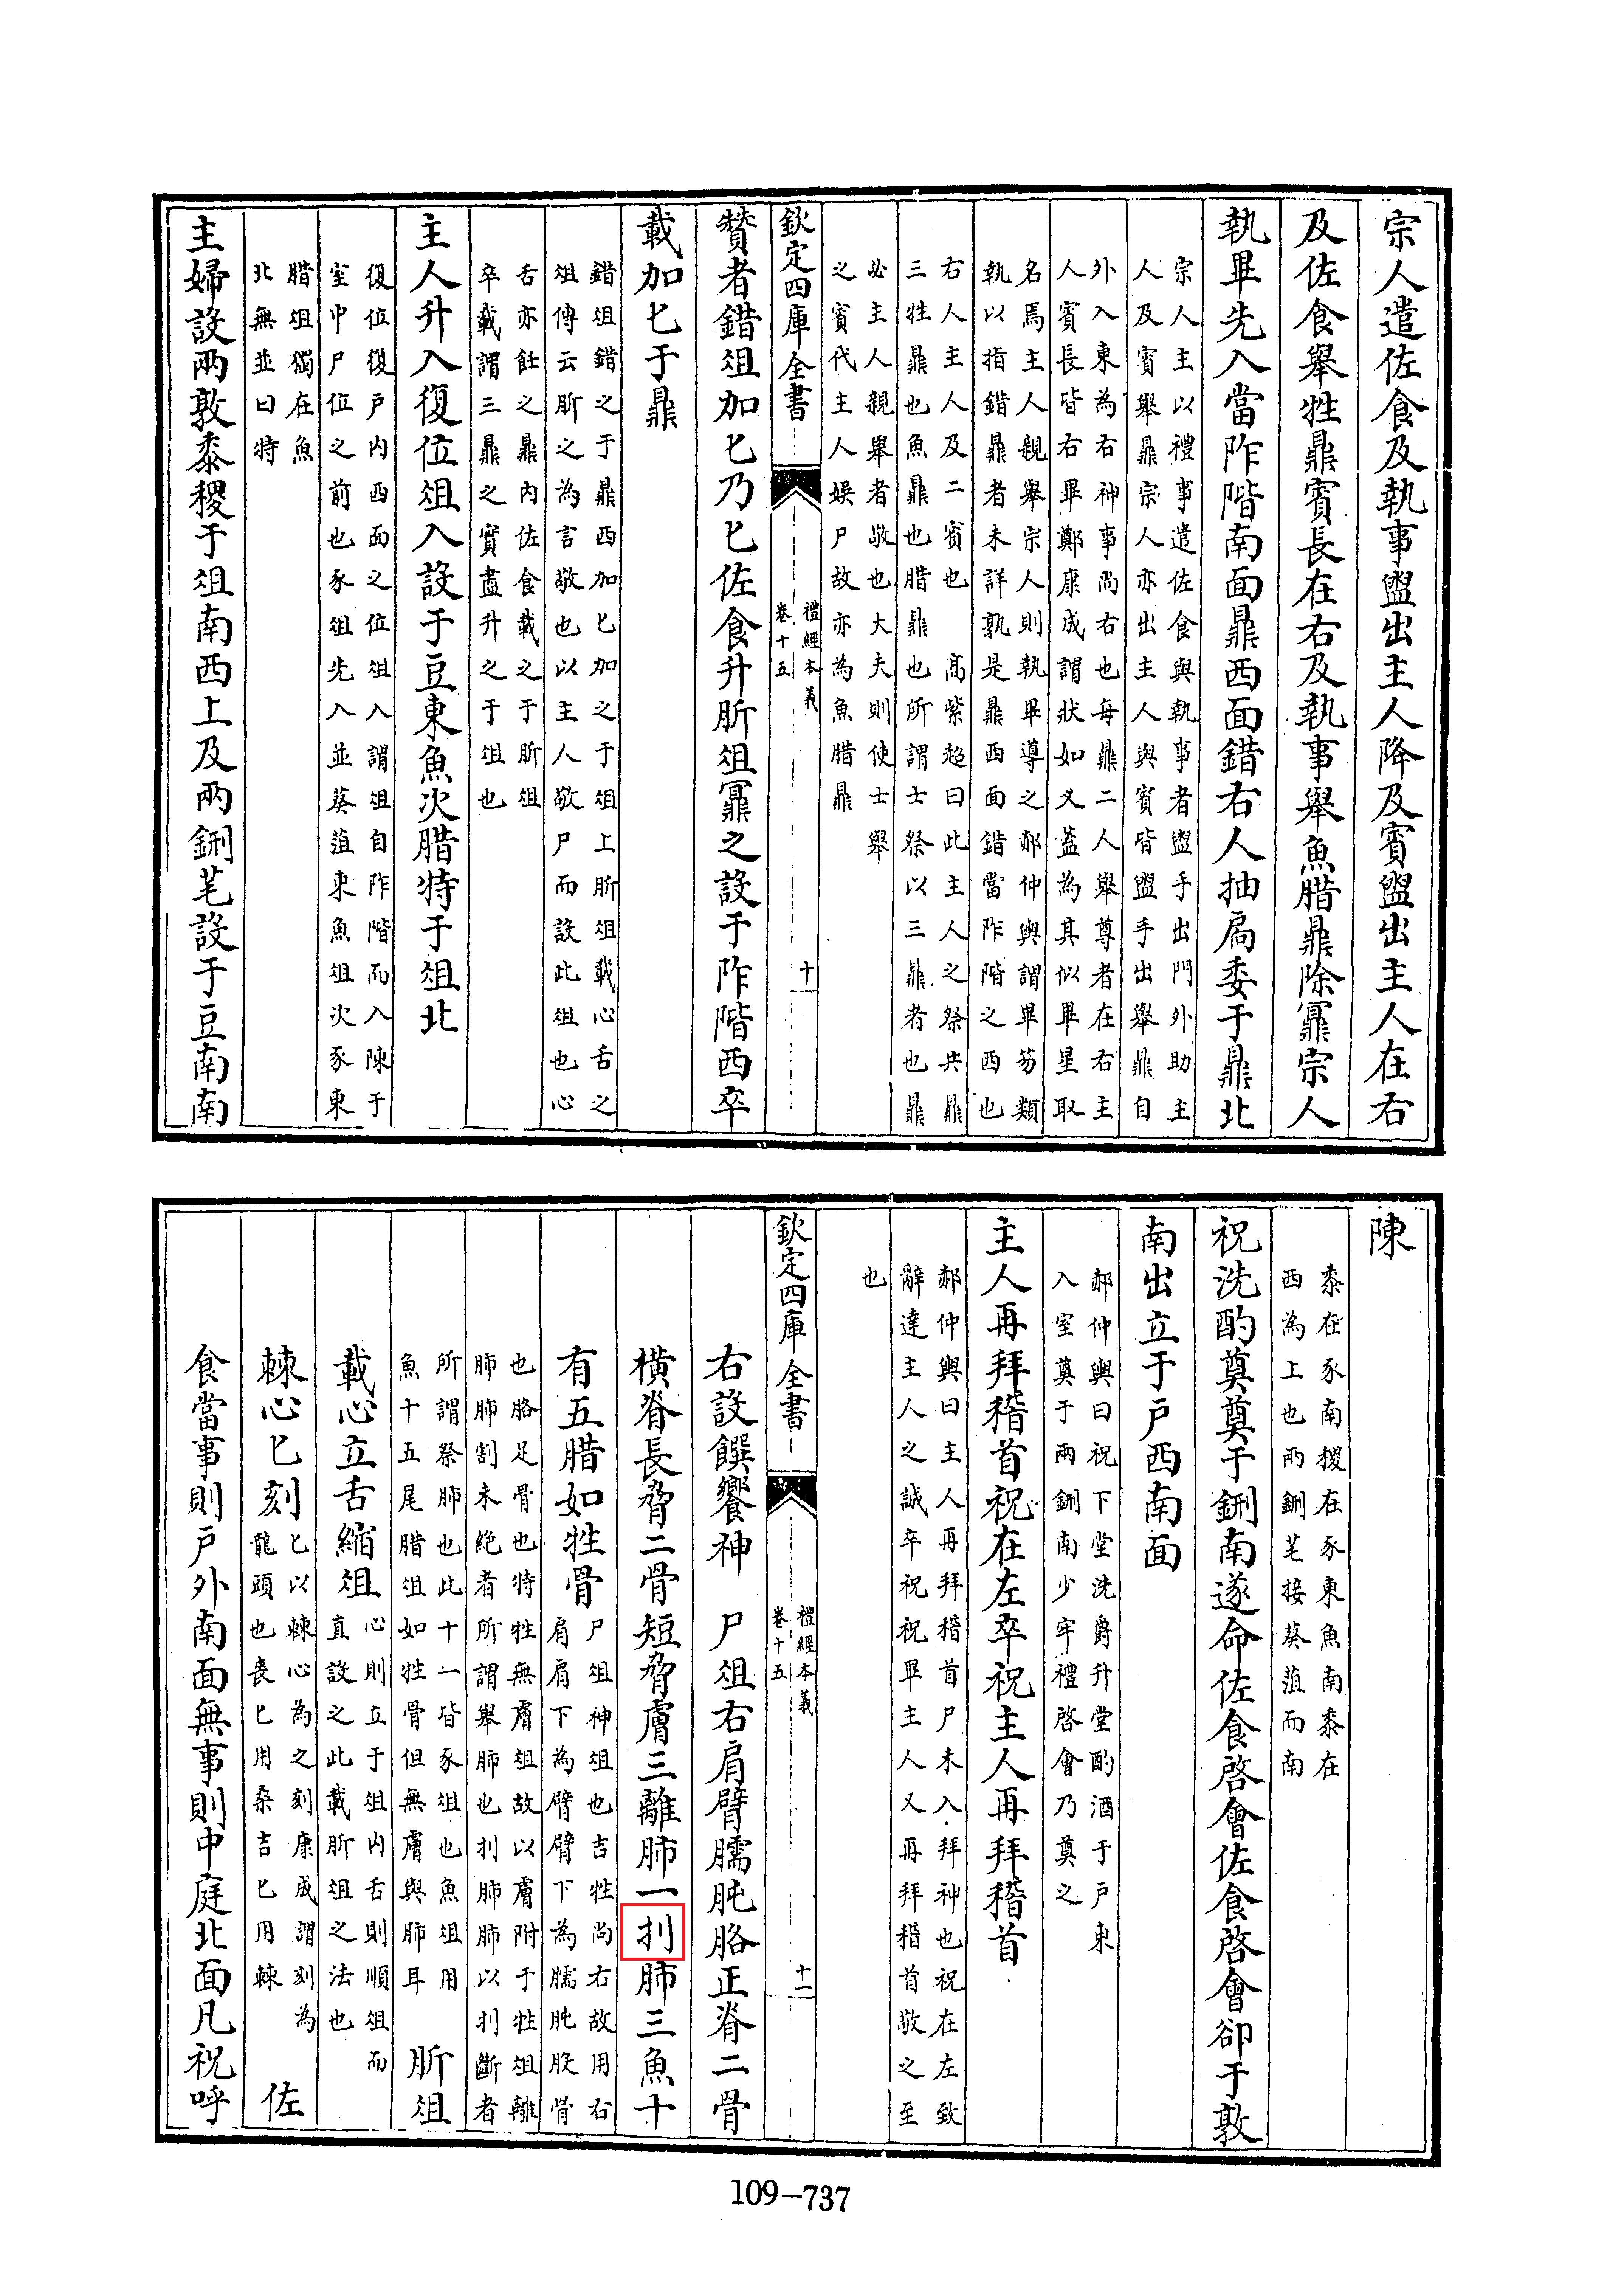 宗人遣佐食及執事盥出主人降及賓盥出主人在右
及佐食舉牲鼎賓長在右及執事舉魚腊鼎除鼏宗人
執畢先入當阼階南面鼎西面錯右人抽扃委于鼎北
宗人主以禮事遣佐食與執事者盥手出門外助主
人及賓舉鼎宗人亦出主人與賓皆盥手出舉鼎自
外入東為右神事尚右也每鼎二人舉尊者在右主
人賓長皆右畢鄭康成謂狀如乂葢為其似畢星取
名焉主人親舉宗人則執畢導之郝仲輿謂畢笏類
執以指錯鼎者未詳孰是鼎西面錯當阼階之西也
右人主人及二賓也 高紫超曰此主人之祭共鼎
三牲鼎也魚鼎也腊鼎也所謂士祭以三鼎者也鼎
必主人親舉者敬也大夫則使士舉
之賓代主人娛尸故亦為魚腊鼎
欽定四庫全書
禮經本義
卷十五
十
贊者錯俎加匕乃匕佐食升肵俎鼏之設于阼階西卒
載加匕于鼎
錯俎錯之于鼎西加匕加之于俎上肵俎載心舌之
俎傳云肵之為言敬也以主人敬尸而設此俎也心
舌亦飪之鼎內佐食載之于肵俎
卒載謂三鼎之實盡升之于俎也
主人升入復位俎入設于豆東魚次腊特于俎北
復位復戶內西面之位俎入謂俎自阼階而入陳于
室中尸位之前也豕俎先入並葵菹東魚俎次豕東
腊俎獨在魚
北無並曰特
主婦設兩敦黍稷于俎南西上及兩鉶芼設于豆南南
陳
黍在豕南稷在豕東魚南黍在
西為上也兩鉶芼接葵菹而南
祝洗酌奠奠于鉶南遂命佐食啓會佐食啓會卻于敦
南出立于戶西南面
郝仲輿曰祝下堂洗爵升堂酌酒于戶東
入室奠于兩鉶南少牢禮啓會乃奠之
主人再拜稽首祝在左卒祝主人再拜稽首
郝仲輿曰主人再拜稽首尸未入拜神也祝在左致
辭達主人之誠卒祝祝畢主人又再拜稽首敬之至
也
欽定四庫全書
禮經本義
卷十五
十一
右設饌饗神 尸俎右肩臂臑肫胳正脊二骨
橫脊長脅二骨短脅膚三離肺一刌肺三魚十
有五腊如牲骨
尸俎神俎也吉牲尚右故用右
肩肩下為臂臂下為臑肫股骨
也胳足骨也特牲無膚俎故以膚附于牲俎離
肺肺割未絶者所謂舉肺也刌肺肺以刌斷者
所謂祭肺也此十一皆豕俎也魚俎用
魚十五尾腊俎如牲骨但無膚與肺耳
肵俎
載心立舌縮俎
心則立于俎內舌則順俎而
直設之此載肵俎之法也
棘心匕刻
匕以棘心為之刻康成謂刻為
龍頭也喪匕用桑吉匕用棘
佐
食當事則戶外南面無事則中庭北面凡祝呼
109-737